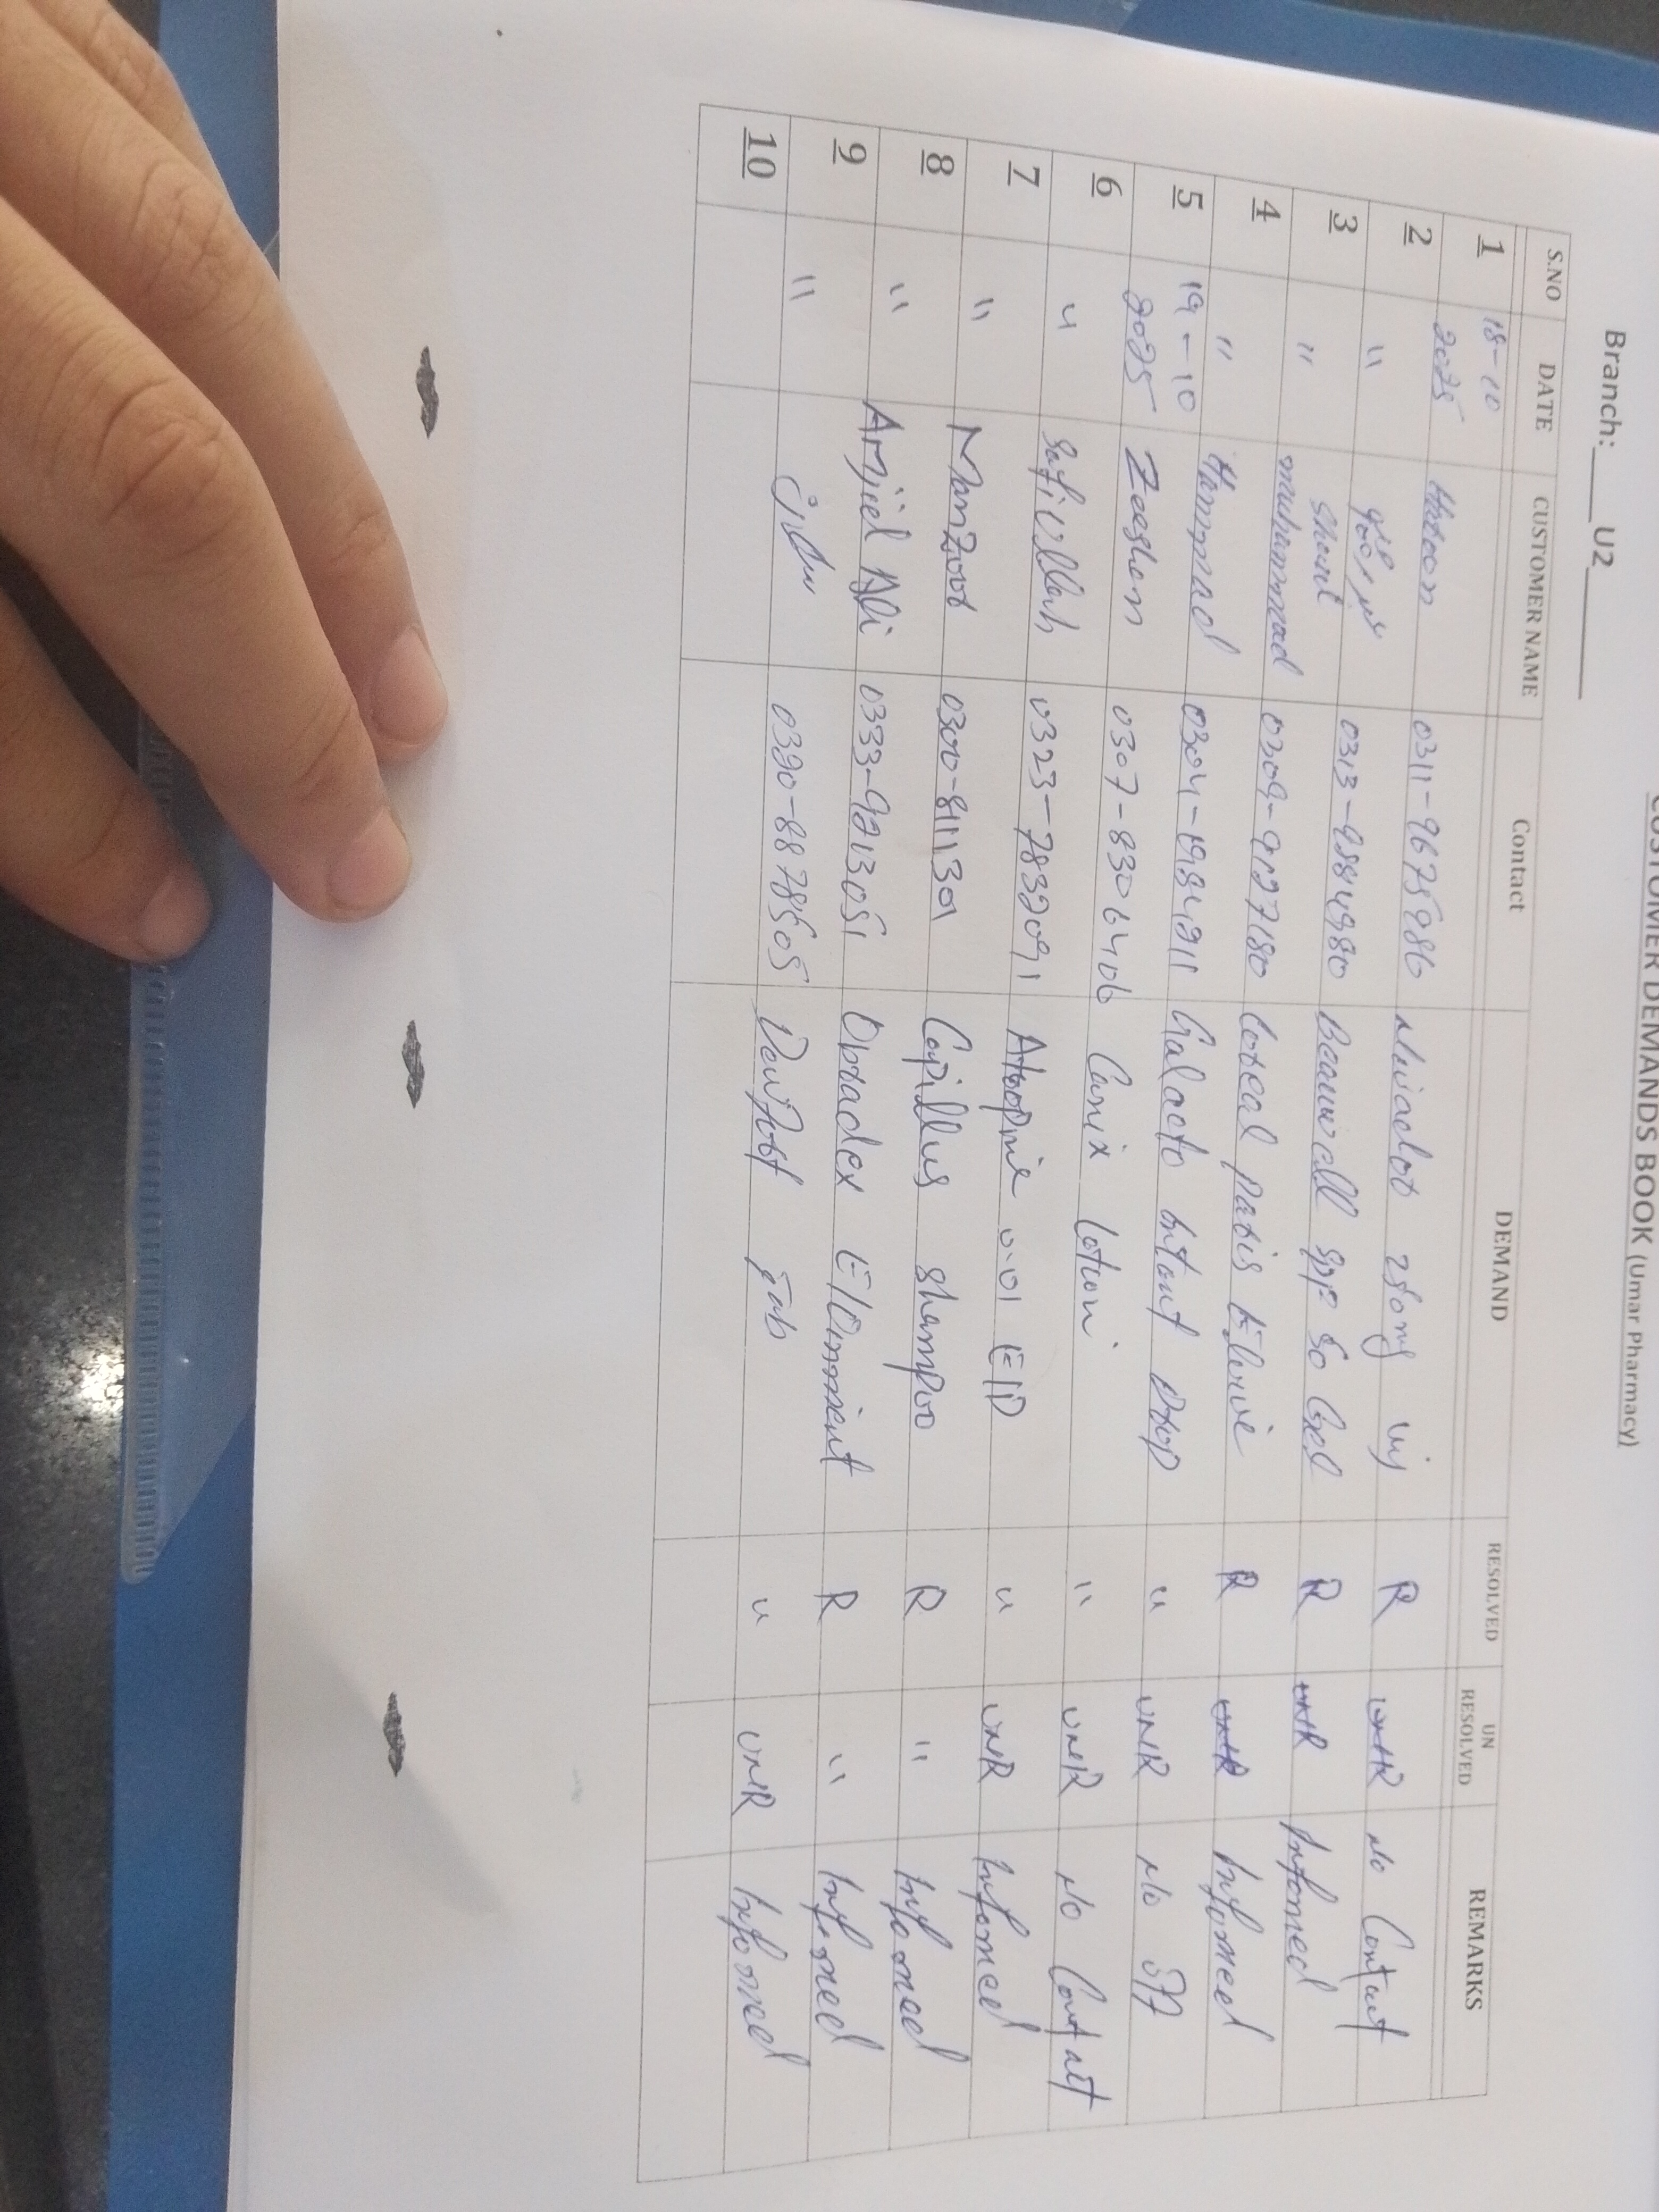 CUSTOMER DEMANDS BOOK (Umar Pharmacy)
Branch: U2
S.NO DATE CUSTOMER NAME Contact DEMAND RESOLVED UN RESOLVED REMARKS
1 18-10 2025 Haroon 0311-9675986 inj R UNR No Contact
2 " 0313-9884980 Gel R UNR Informed
3 " Muhammad 0309-9127180 R UNR Informed
4 " Hammad 0304-1984911 Galacto Drop " UNR No
5 19-10 2025 Zeeshan 0307-8306406 Canix lotion " UNR No Contact
6 " Safiullah 0323-7832091 Atropine 0.01 E/D " UNR Informed
7 " Manzoor 0300-8111301 Capillus shampoo R " Informed
8 " Amjed Ali 0333-9213051 Obradex E/Oinment R " Informed
9 " 0320-8878505 Tab " UNR Informed
10